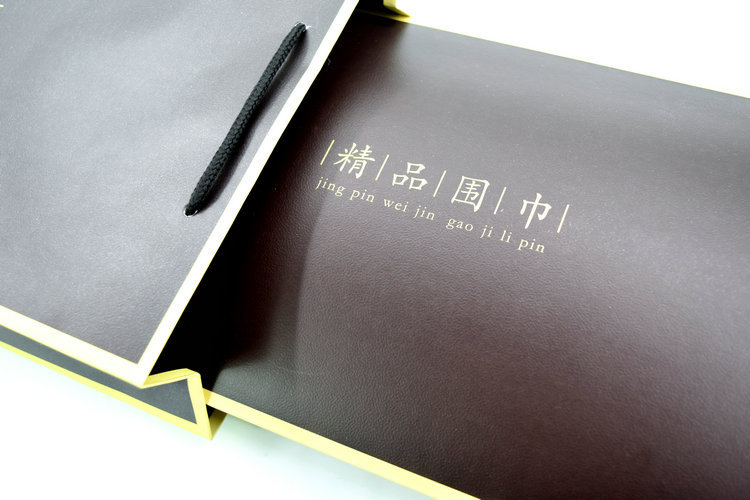 |精|品|围|巾|
jing pin wei jin gao ji li pin